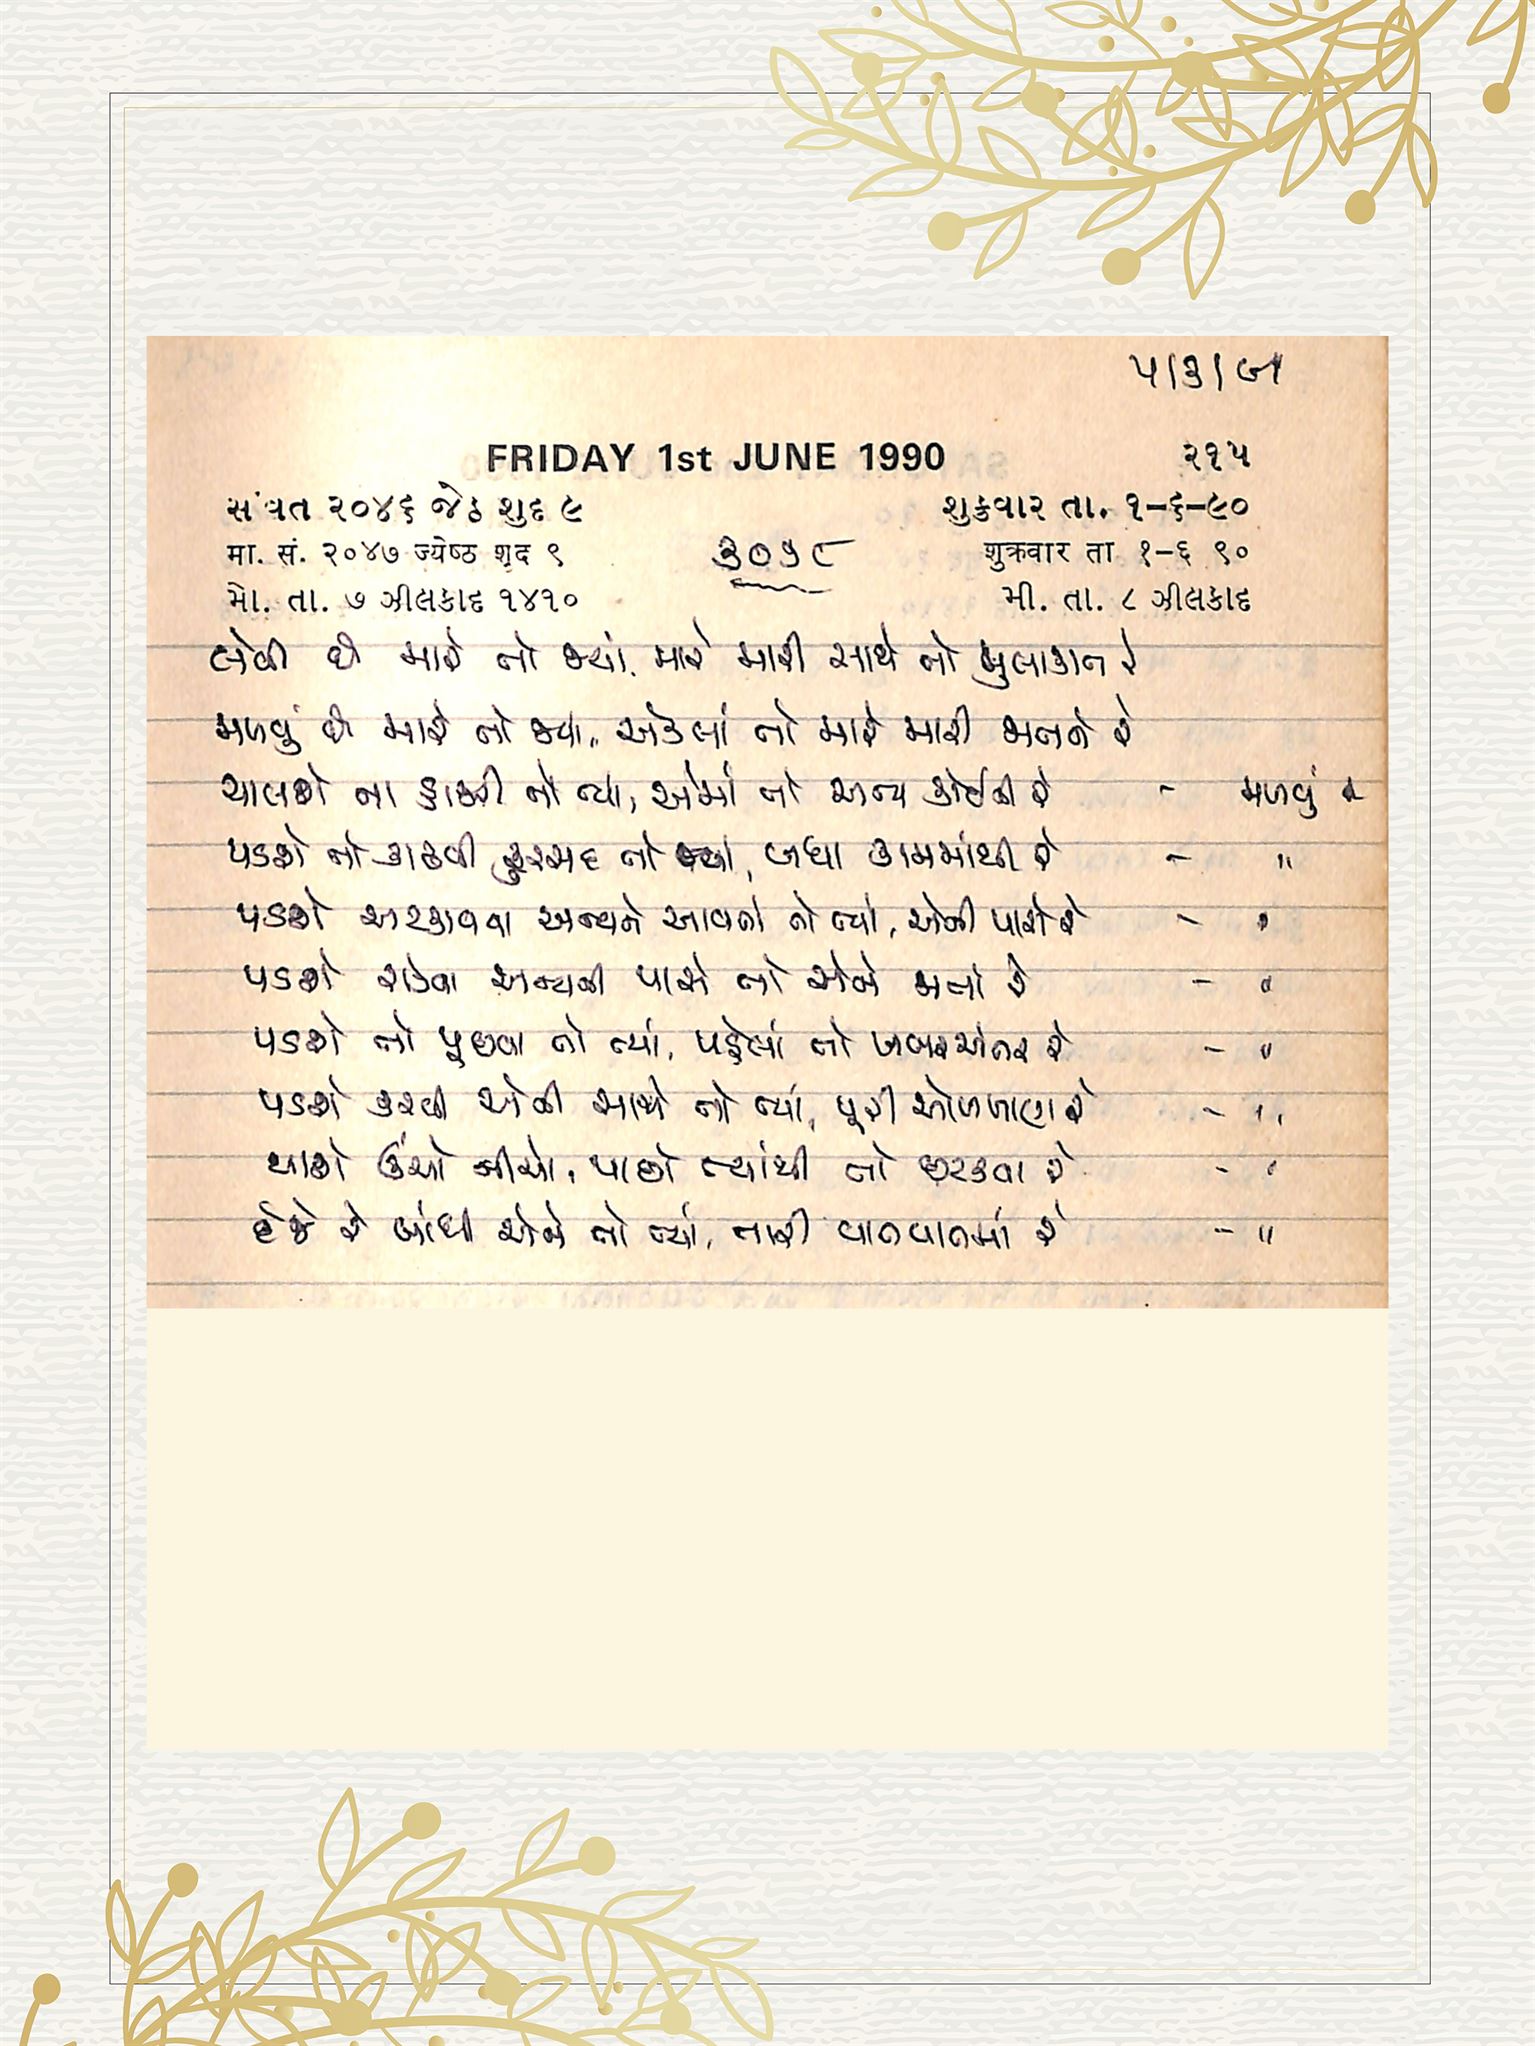 ૫/૩/૯૧
FRIDAY 1st JUNE 1990 ૨૧૫
સંવત ૨૦૪૬ જેઠ શુદ ૯ શુક્રવાર તા. ૧-૬-૯૦
मा. सं. २०४७ ज्येष्ठ शुद ९ ૩૦૫૮ शुक्रवार ता १-६ ९०
મો. તા. ૭ ઝીલકાદ ૧૪૧૦ મી. તા. ૮ ઝીલકાદ
લેવી છે મારે તો જ્યાં, મારે મારી સાથે તો મુલાકાત રે
મળવું છે મારે તો જ્યાં, એકલાં તો મારે મારી મનને રે
ચાલશે ના હાજરી તો ત્યાં, એમાં તો અન્ય કોઈની રે - મળવું છે
પડશે તો કાઢવી ફુરસદ તો ત્યાં, બધા કામમાંથી રે - "
પડશે અટકાવવા અન્યને આવતાં તો ત્યાં, એની પાસે રે - "
પડશે રોકવા અન્યની પાસે તો એને જતાં રે - "
પડશે તો પૂછવા તો ત્યાં, પહેલાં તો ખબરઅંતર રે - "
પડશે કરવી એની સાથે તો ત્યાં, પૂરી ઓળખાણ રે - "
થાશે ઊંચો નીચો, પાછો ત્યાંથી તો છટકવા રે - "
દેજે રે બાંધી એને તો ત્યાં, તારી વાતવાતમાં રે - "